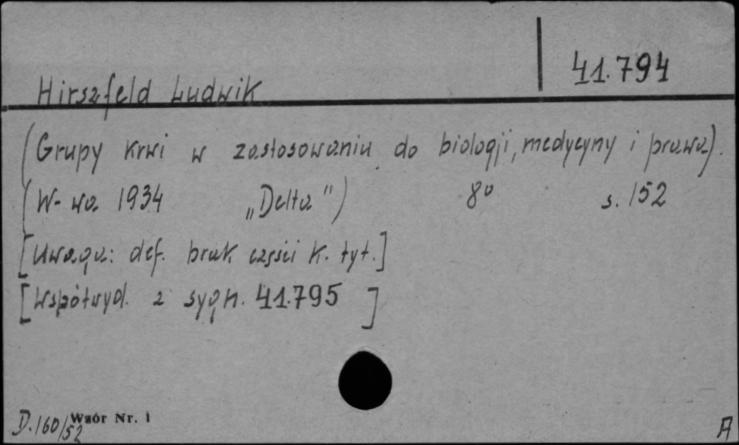 41.794
Hirszfeld Ludwik
(Grupy krwi w zastosowaniu do biologji, medycyny i prawa).
(W-wa 1934 „Delta") 8° s. 152
[Uwaga: def. brak części k. tyt.]
[Współwyd. z sygn. 41.795]
D.160/52 Wzór Nr. 1
A